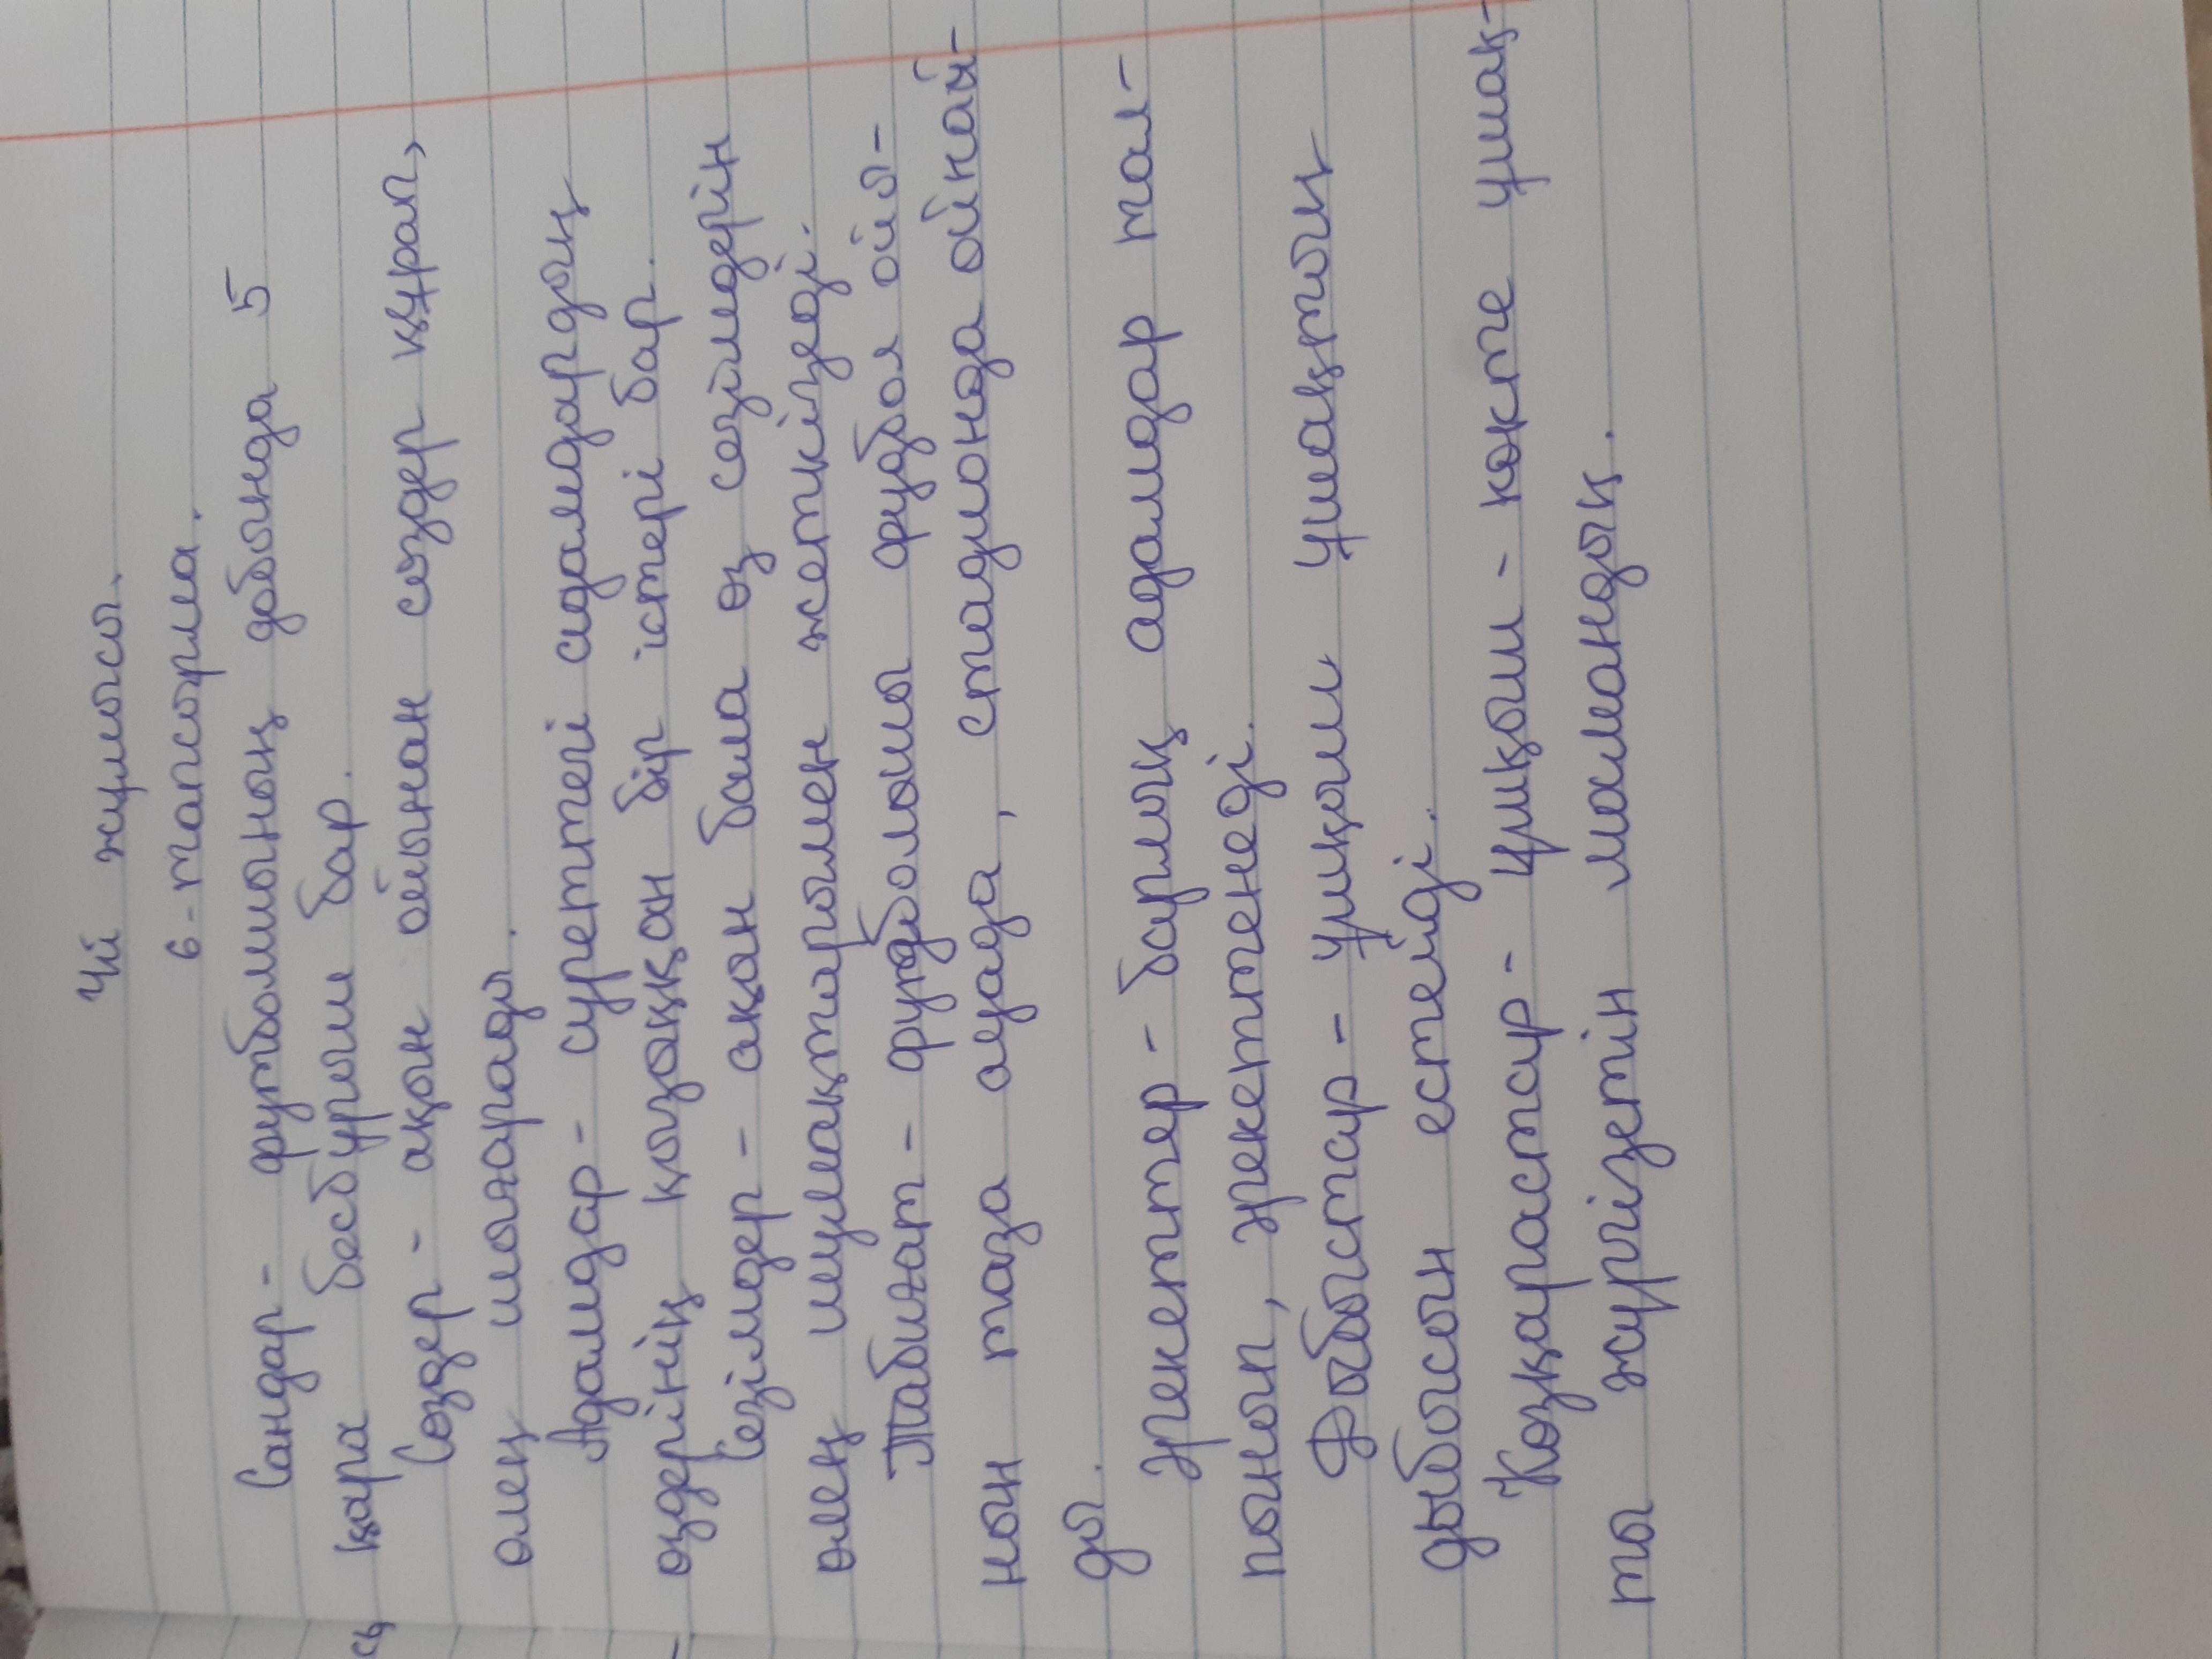 Үй жұмысы.
6-тапсырма.
Сандар- футболшының добында 5
қара бесбұрыш бар.
Сөздер- ақын ойынан сөздер құрап,
өлең шығарады.
Адамдар- суреттегі адамдардың
өздерінің қызаққан бір істері бар.
Сезімдер- ақын бала өз сезімдерін
өлең шумақтарымен жеткізеді.
Табиғат- футболшы футбол ойы-
нын таза ауада, стадионда ойнай-
ды.
Әрекеттер- барлық адамдар тал-
пынып, әрекеттенеді.
Дыбыстар- ұшқыш ұшақтың
дыбысын естейді.
Көзқарастар- Ұшқыш- көкте ұшақ-
ты жүргізетін мамандық.